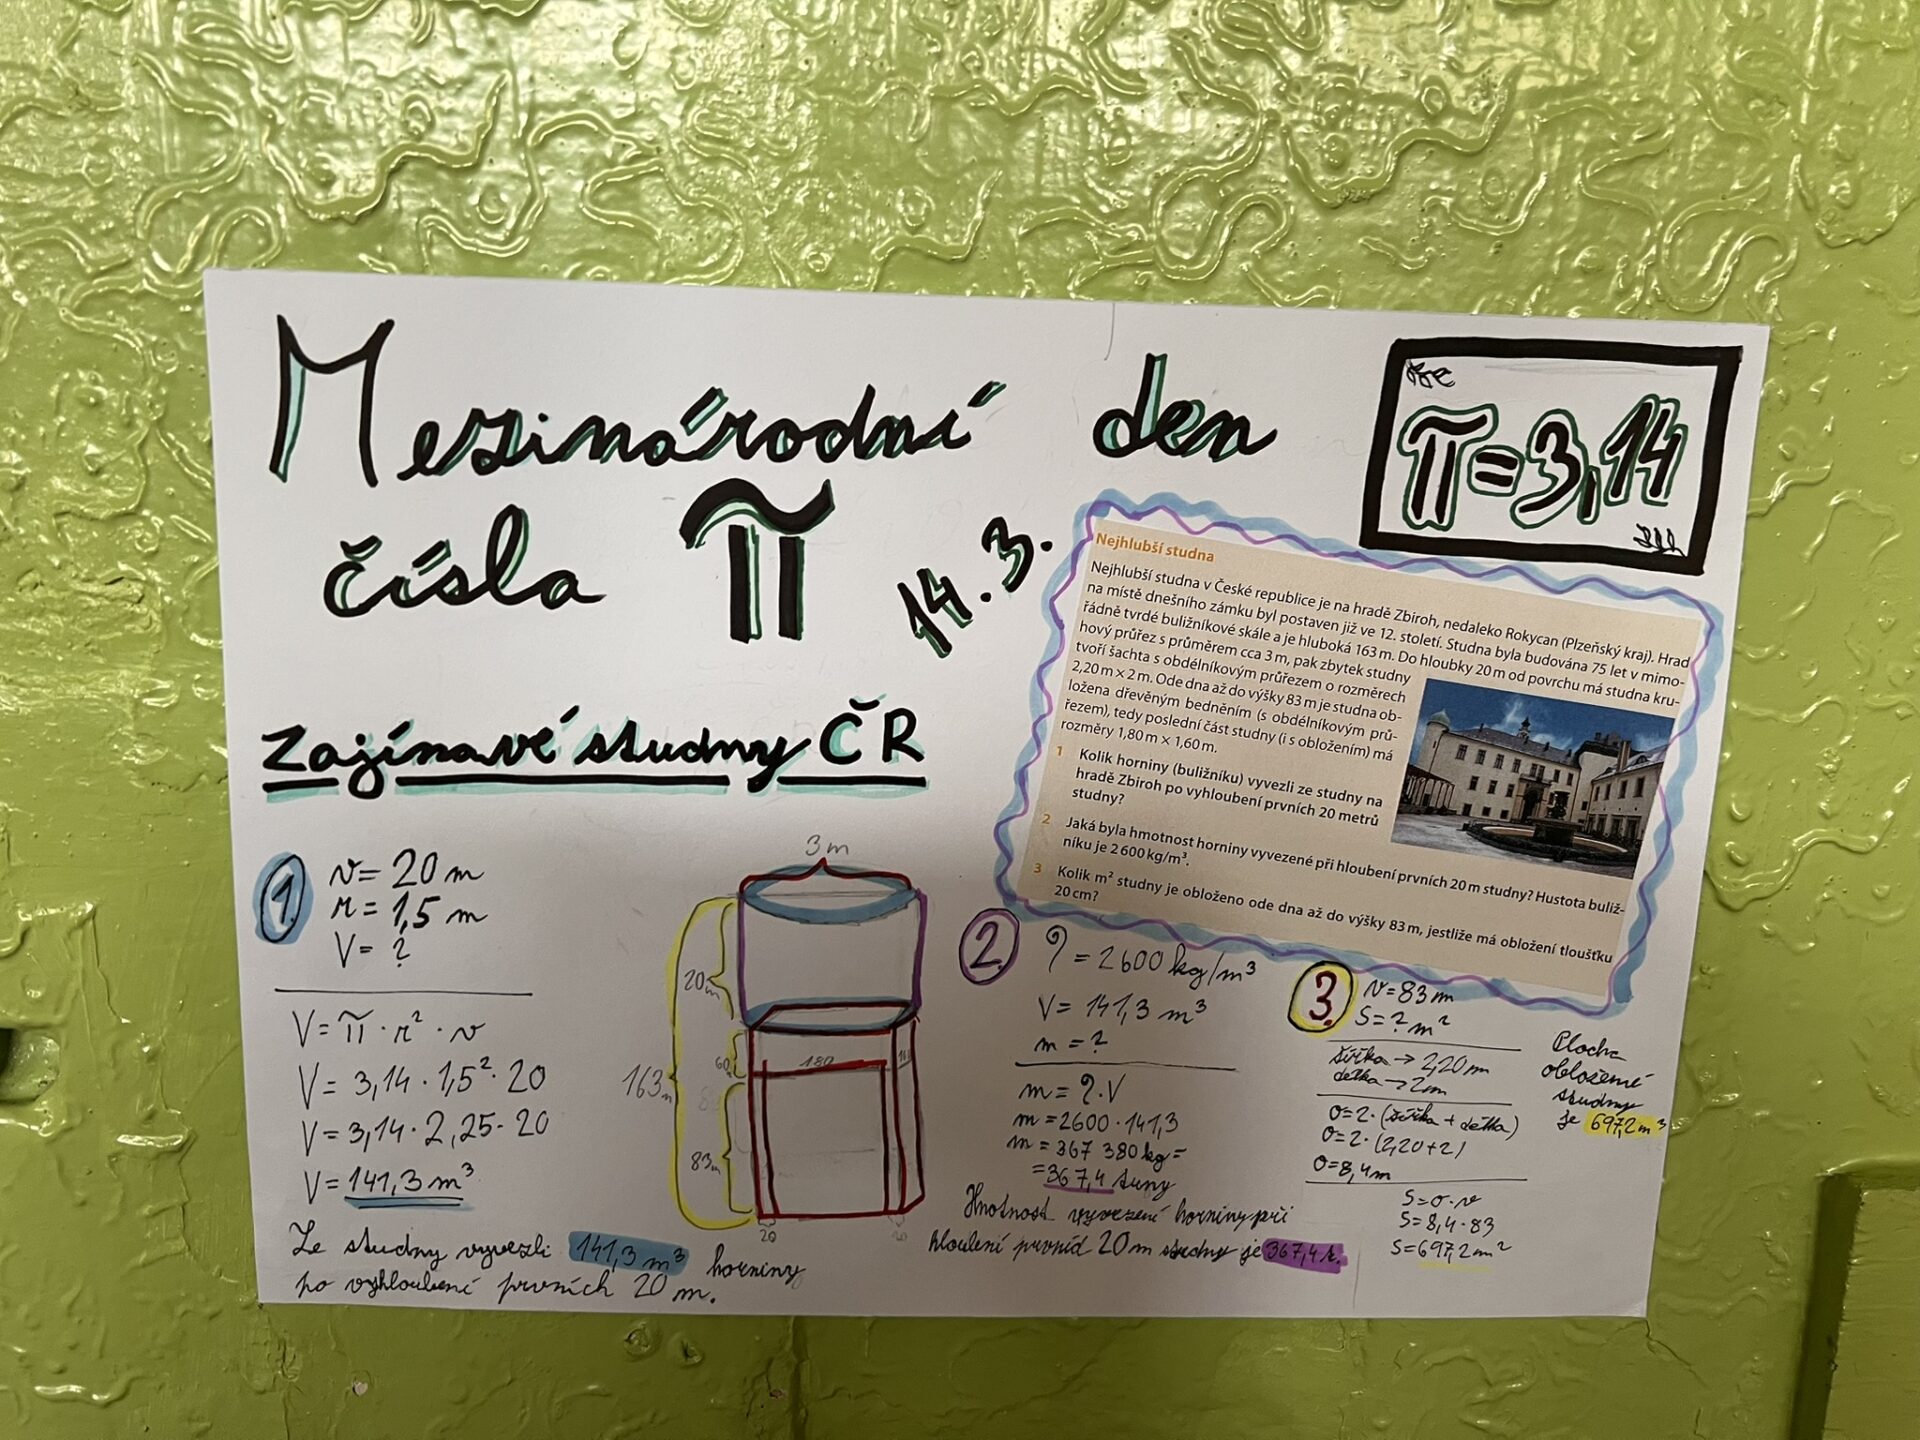 Mezinárodní den
čísla π 14.3.
π=3,14
Zajímavé studny ČR
Nejhlubší studna
Nejhlubší studna v České republice je na hradě Zbiroh, nedaleko Rokycan (Plzeňský kraj). Hrad
na místě dnešního zámku byl postaven již ve 12. století. Studna byla budována 75 let v mimo-
řádně tvrdé buližníkové skále a je hluboká 163 m. Do hloubky 20 m od povrchu má studna kru-
hový průřez s průměrem cca 3 m, pak zbytek studny
tvoří šachta s obdélníkovým průřezem o rozměrech
2,20 m × 2 m. Ode dna až do výšky 83 m je studna ob-
ložena dřevěným bedněním (s obdélníkovým prů-
řezem), tedy poslední část studny (i s obložením) má
rozměry 1,80 m × 1,60 m.
1 Kolik horniny (buližníku) vyvezli ze studny na
hradě Zbiroh po vyhloubení prvních 20 metrů
studny?
2 Jaká byla hmotnost horniny vyvezené při hloubení prvních 20 m studny? Hustota buliž-
níku je 2 600 kg/m³.
3 Kolik m² studny je obloženo ode dna až do výšky 83 m, jestliže má obložení tloušťku
20 cm?
1.
v= 20 m
r= 1,5 m
V= ?
V= π · r² · v
V= 3,14 · 1,5² · 20
V= 3,14 · 2,25 · 20
V= 141,3 m³
Ze studny vyvezli 141,3 m³ horniny
po vyhloubení prvních 20 m.
3 m
20m
163m
60
180
83m
20
20
2.
ρ = 2600 kg/m³
V= 141,3 m³
m = ?
m = ρ.V
m = 2600 · 141,3
m = 367 380 kg =
=367,4 tuny
Hmotnost vyvezené horniny při
hloubení prvníd 20 m studny je 367,4 t.
3.
v=83m
S=? m²
šířka → 2,20m
délka → 2m
o=2·(šířka + délka)
o=2·(2,20+2)
o=8,4m
S=o·v
S=8,4·83
S=697,2m²
Plocha
obložené
studny
je 697,2m³